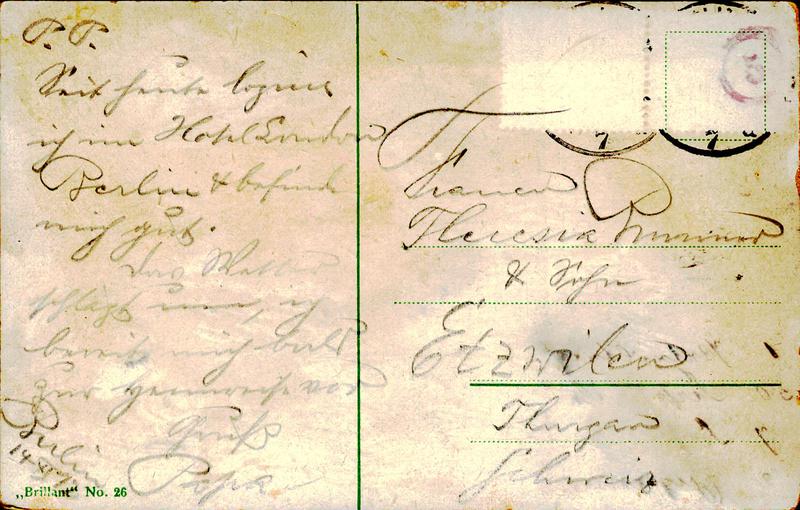 P. P.
Seit heute logiere
ich im Hotel London
Berlin & befinde
mich gut.
Das Wetter
schlägt um, ich
bereite mich bald
zur Heimreise vor
Gruß
Papa
Berlin
14
Frauen
Theresia
& Sohn
Etzwilen
Thurgau
Schweiz
„Brillant" No. 26
7
7